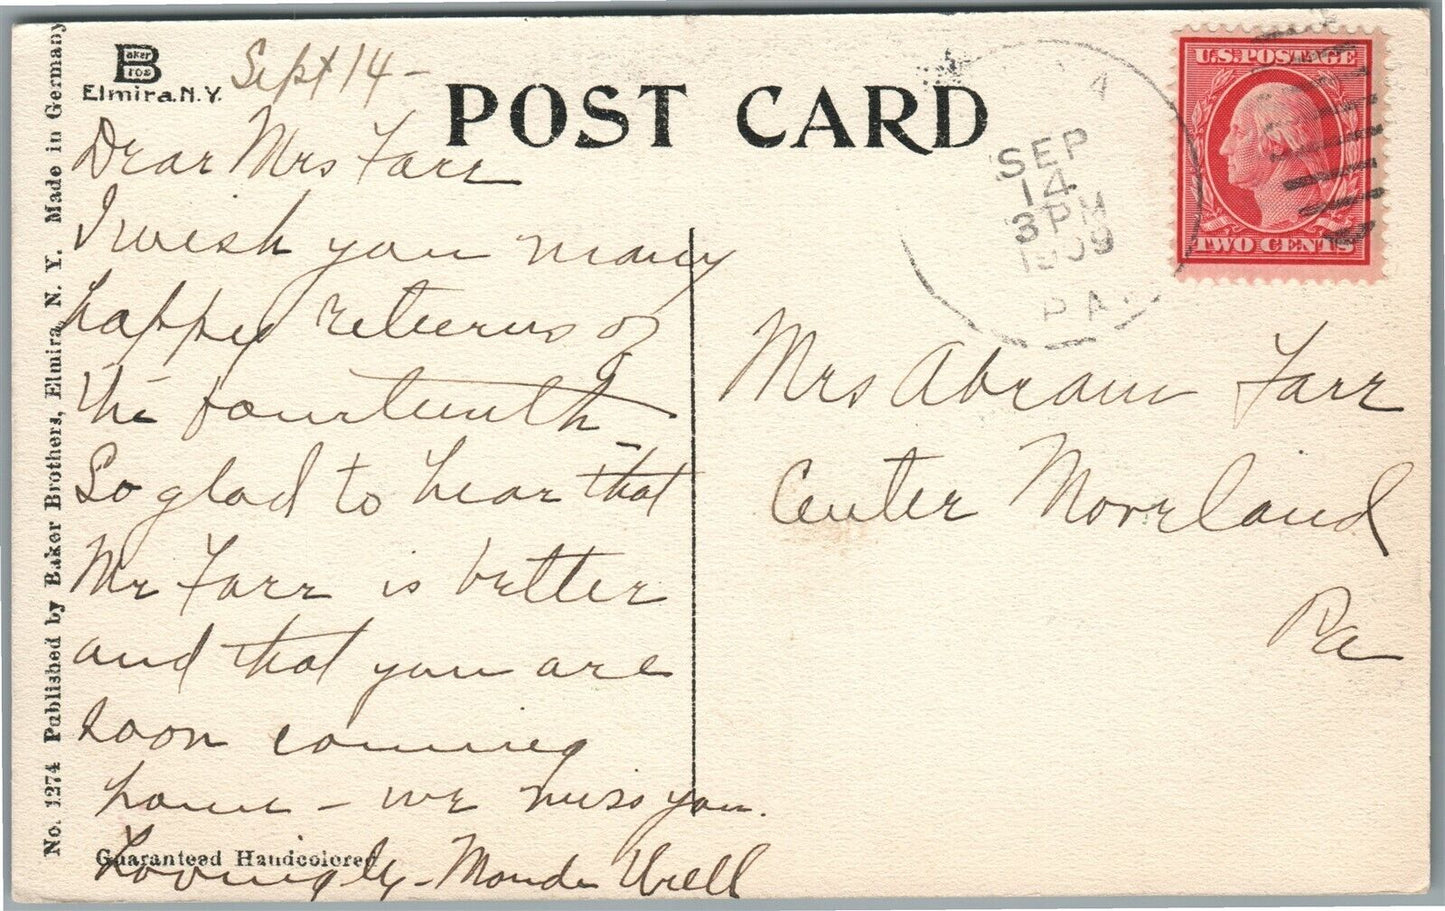 Baker
Bros
Elmira. N.Y.
Sept 14 -
POST CARD
Dear Mrs Farr
I wish you many
happy returns of
the fourteenth -
So glad to hear that
Mr Farr is better
and that you are
soon coming
home - we miss you.
Lovingly -
Guaranteed Handcolored
No. 1274 Published by Baker Brothers, Elmira, N. Y. Made in Germany
SEP
14
3 PM
1909
PA
U.S. POSTAGE
TWO CENTS
Mrs Abram Farr
Center Moreland
Pa